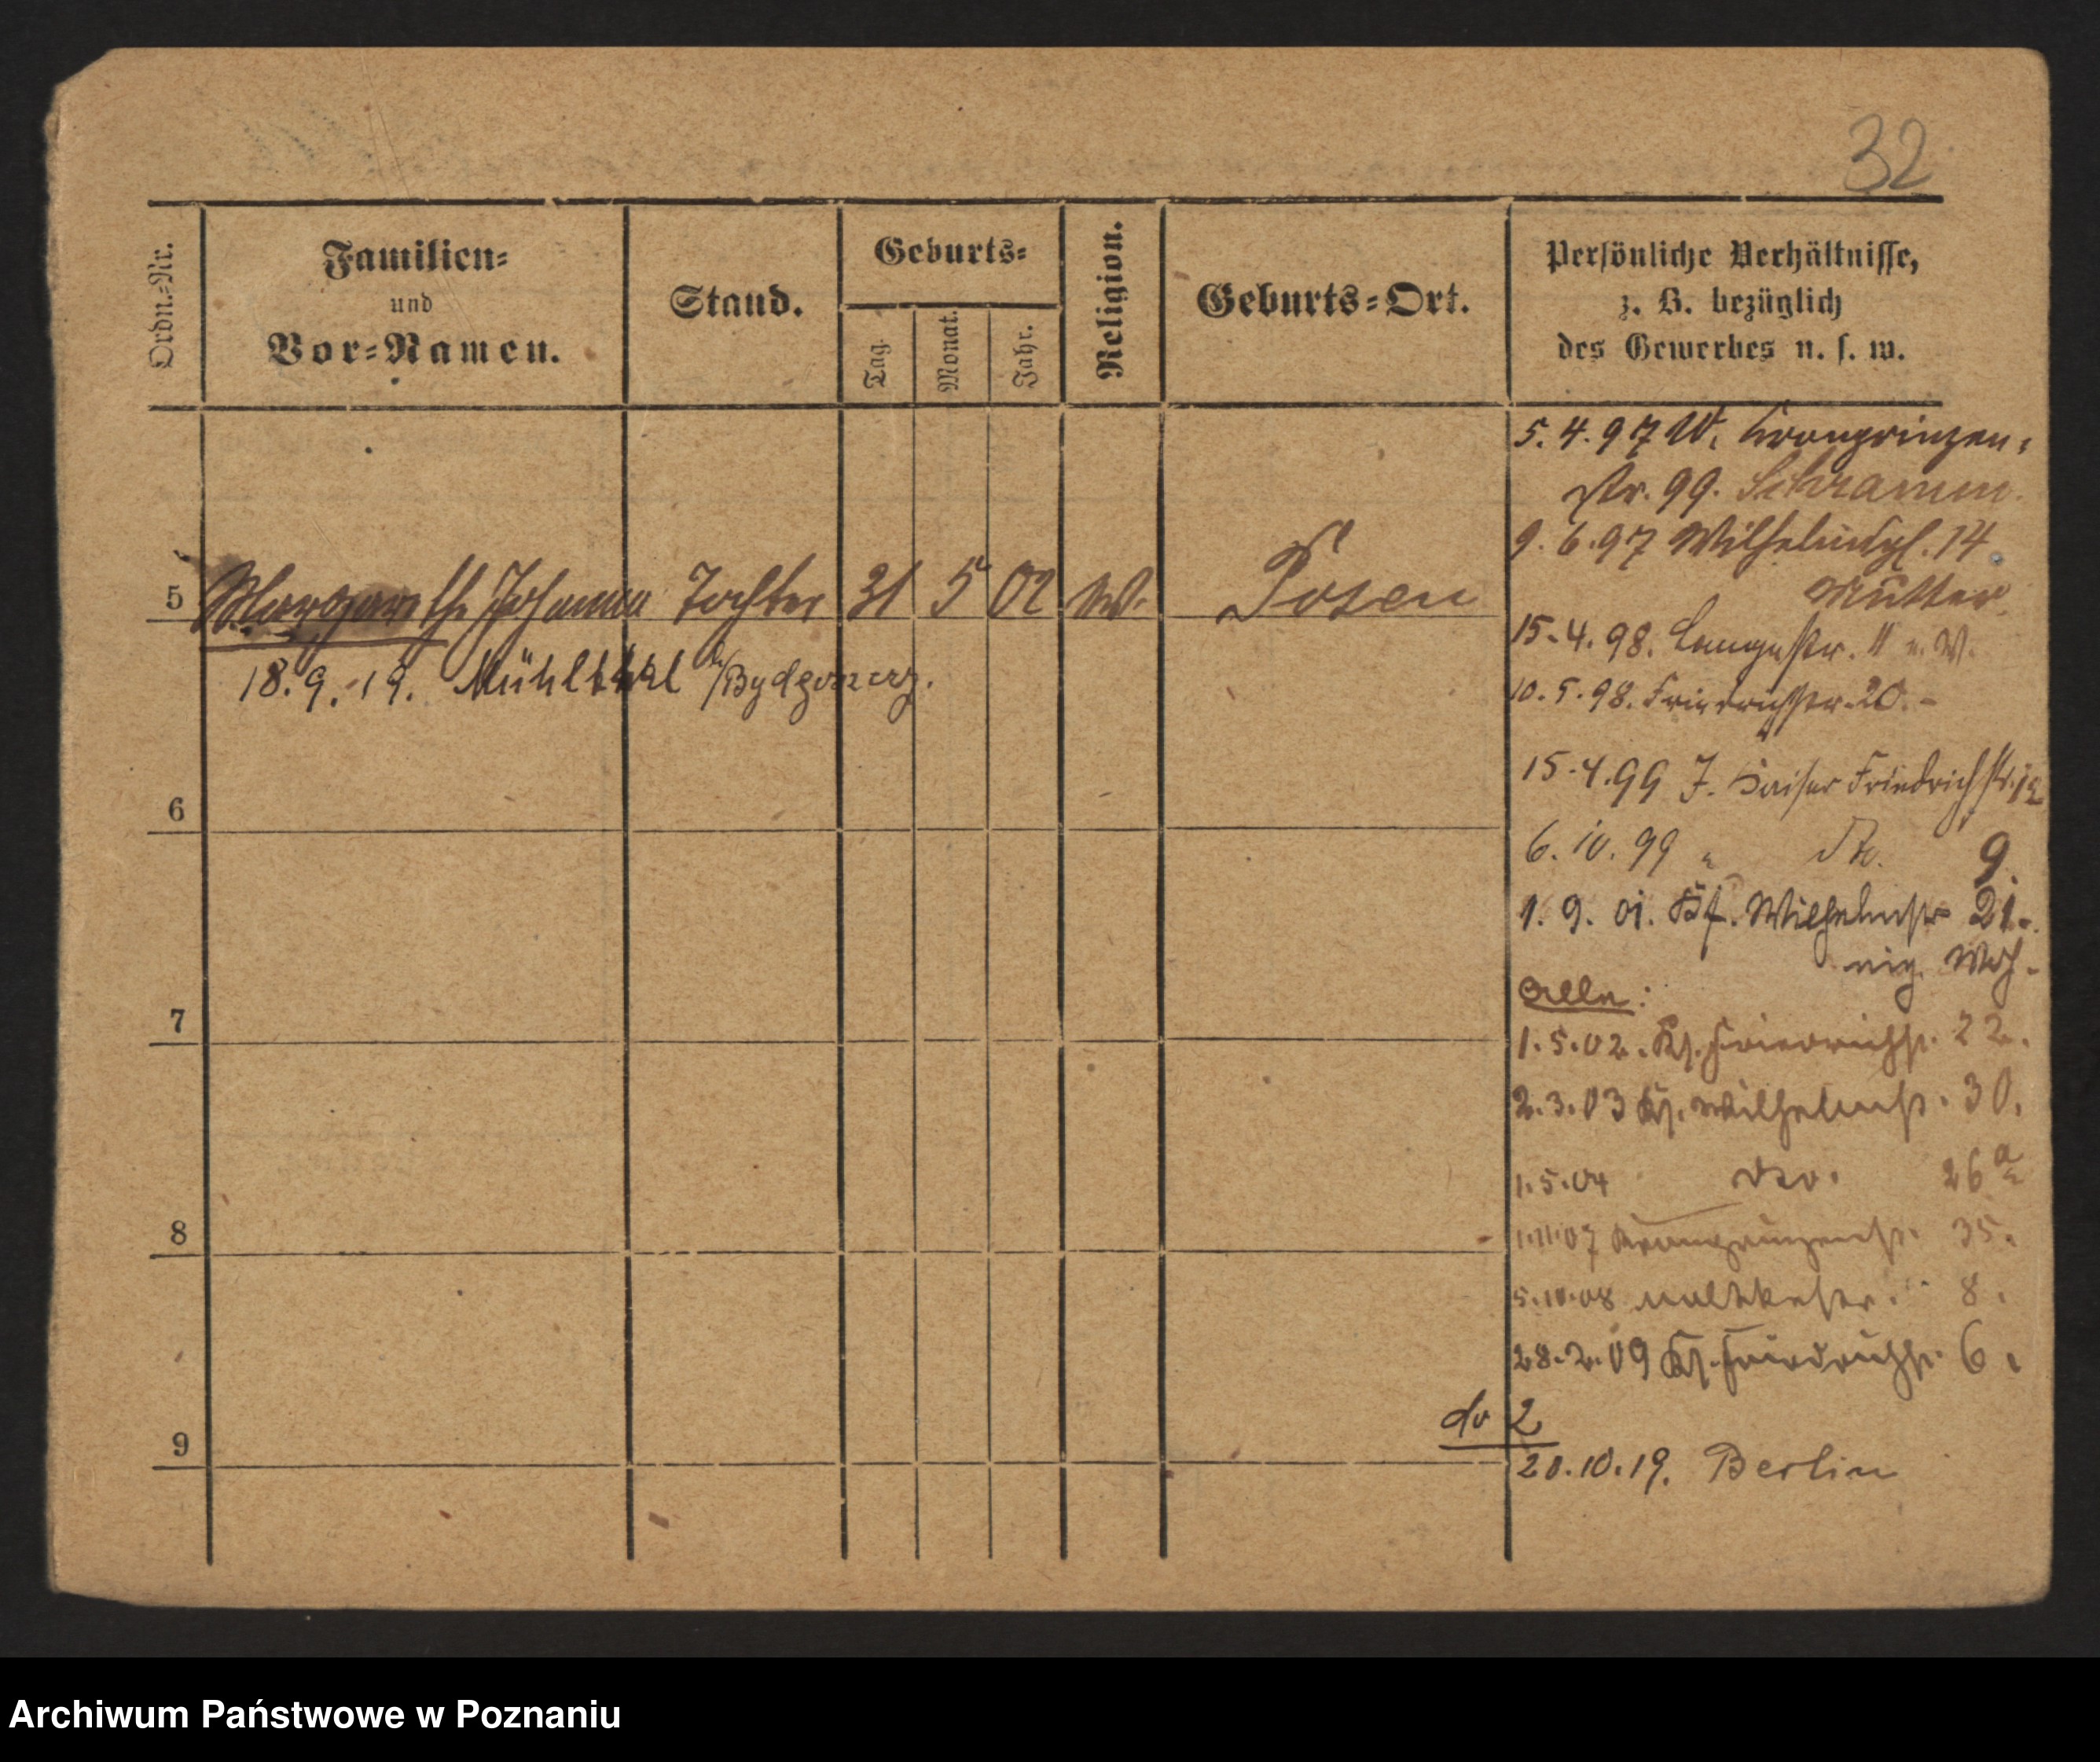 32
Ordn.-Nr.
Familien-
und
Vor-Namen.
Stand.
Geburts-
Tag.
Monat.
Jahr.
Religion.
Geburts-Ort.
Persönliche Verhältnisse,
z. B. bezüglich
des Gewerbes u. s. w.
5. 4. 97 W. Kronprinzen-
str. 99. Schramm.
9. 6. 97 Wilhelmspl. 14
Mutter.
5 Margarethe Johanna Tochter 31 5 02 Posen
18. 9. 19. Mühlthal b/Bydgoszcz.
15. 4. 98. Langestr. 11
10. 5. 98. Friedrichstr. 20. -
15. 4. 99 J. Kaiser Friedrichstr. 12
6
6. 10. 99 " do. 9.
1. 9. 01. Wilhelmstr 21.
eig. Woh.
Alle:
7
1. 5. 02. Ks. Friedrichst. 22.
2. 3. 03 Ks. Wilhelmst. 30.
1. 5. 04 do. 26 a
8
1. 11. 07 Kronprinzenst. 35.
5. 10. 08 Moltkestr. 8.
28. 2. 09 Ks. Friedrichst. 6.
do 2
9
20. 10. 19. Berlin
Archiwum Państwowe w Poznaniu